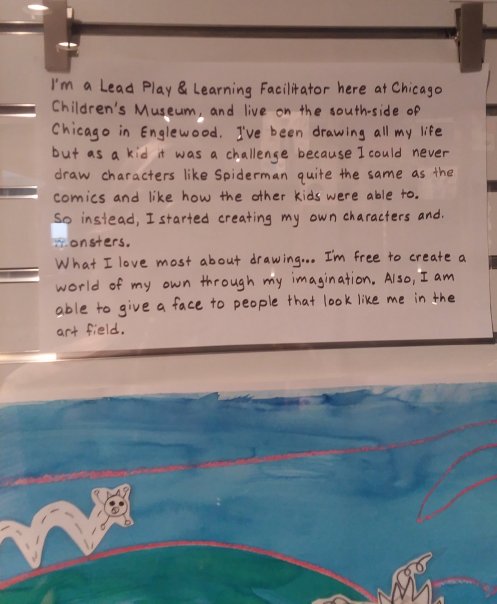 I'm a Lead Play & Learning Facilitator here at Chicago
Children's Museum, and live on the south-side of
Chicago in Englewood. I've been drawing all my life
but as a kid it was a challenge because I could never
draw characters like Spiderman quite the same as the
comics and like how the other kids were able to.
So instead, I started creating my own characters and.
monsters.
What I love most about drawing... I'm free to create a
world of my own through my imagination. Also, I am
able to give a face to people that look like me in the
art field.